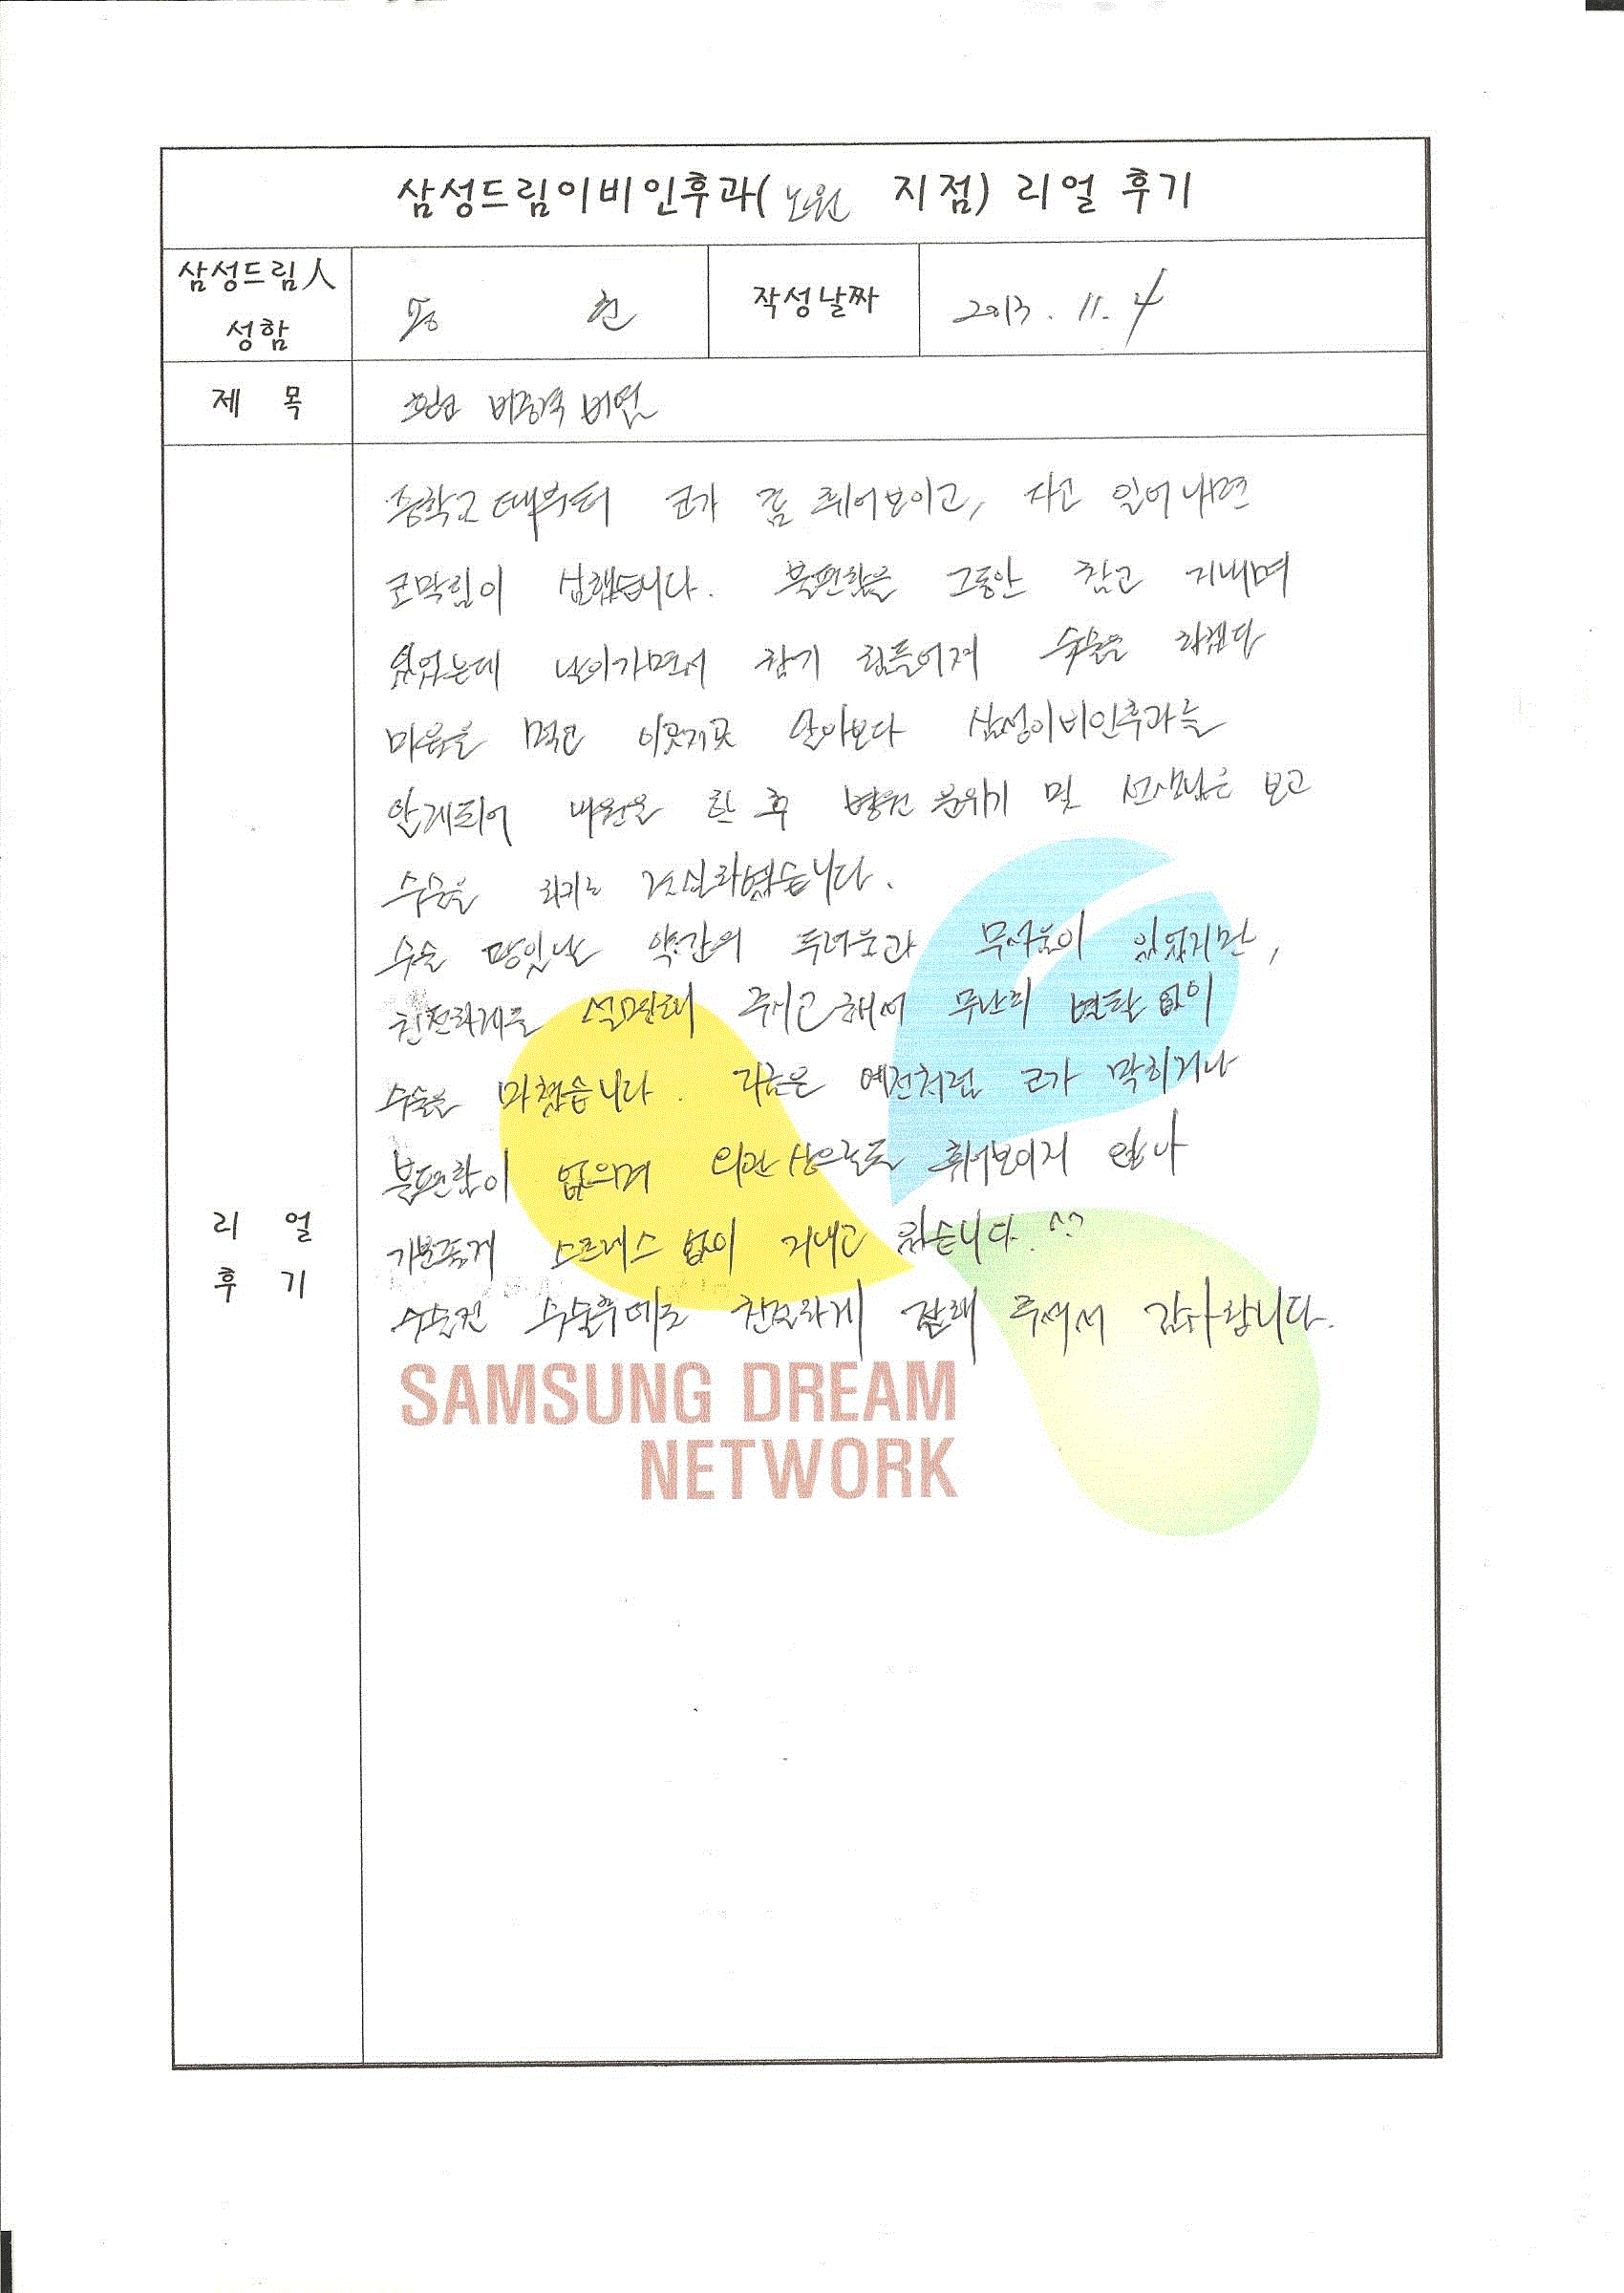 삼성드림이비인후과( 노원 지점) 리얼 후기
삼성드림人
성함
현
작성날짜
2013. 11. 4
제 목
비중격 비염
중학교 때부터 코가 좀 휘어보이고, 자고 일어나면
코막힘이 심했습니다. 불편함을 그동안 참고 지내며
있었는데 날이가면서 참기 힘들어져 수술을 하겠다
마음을 먹고 이곳저곳 알아보다 삼성이비인후과를
알게되어 내원을 한 후 병원 분위기 및 선생님을 보고
수술을 하기로 결심하였습니다.
수술 당일날 약간의 두려움과 무서움이 있었지만,
친절하게들 설명해 주시고 해서 무난히 별탈 없이
수술을 마쳤습니다. 지금은 예전처럼 코가 막히거나
불편함이 없으며 외관상으로도 휘어보이지 않아
기분좋게 스트레스 없이 지내고 있습니다. ^^
수술전 수술후에도 친절하게 잘해 주셔서 감사합니다.
리 얼
후 기
SAMSUNG DREAM
NETWORK